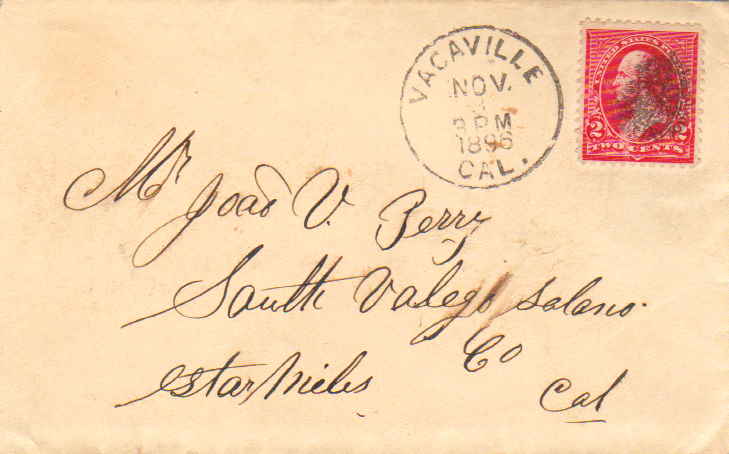 VACAVILLE
NOV.
3 PM
1896
CAL.
UNITED STATES
2 2
TWO CENTS
Mr João V. Perry
South Valego Solano
Co
Star Miels
Cal